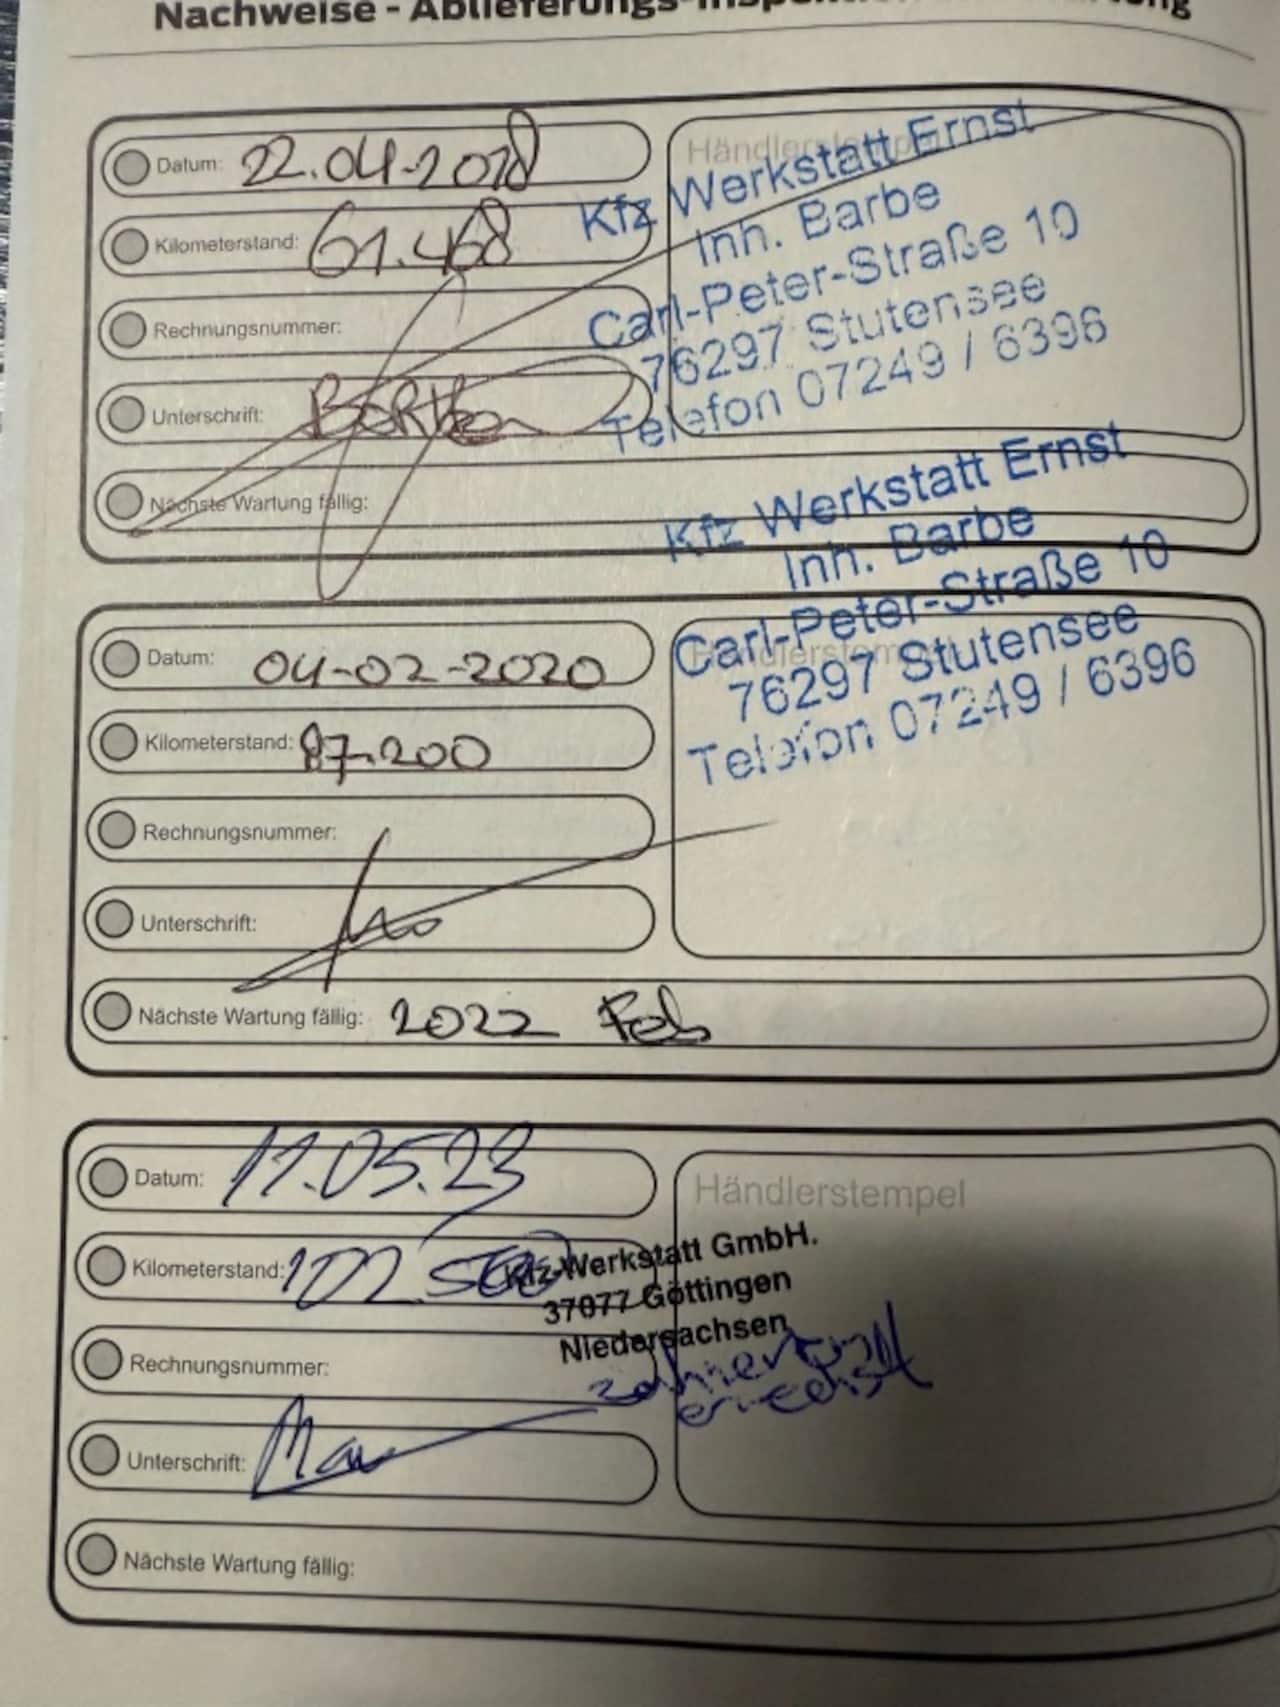 Nachweise - Ablieferungs-Inspektion
Datum: 22.04.2018
Händlerstempel
Kilometerstand: 61.468
Rechnungsnummer:
Unterschrift:
Nächste Wartung fällig:
Kfz Werkstatt Ernst
Inh. Barbe
Carl-Peter-Straße 10
76297 Stutensee
Telefon 07249 / 6396
Kfz Werkstatt Ernst
Inh. Barbe
Carl-Peter-Straße 10
76297 Stutensee
Telefon 07249 / 6396
Händlerstempel
Datum: 04-02-2020
Kilometerstand: 87.200
Rechnungsnummer:
Unterschrift:
Nächste Wartung fällig: 2022 Feb
Datum: 11.05.23
Händlerstempel
Kilometerstand: 102.500
Kfz-Werkstatt GmbH.
37077 Göttingen
Niedersachsen
Rechnungsnummer:
Unterschrift:
Nächste Wartung fällig: